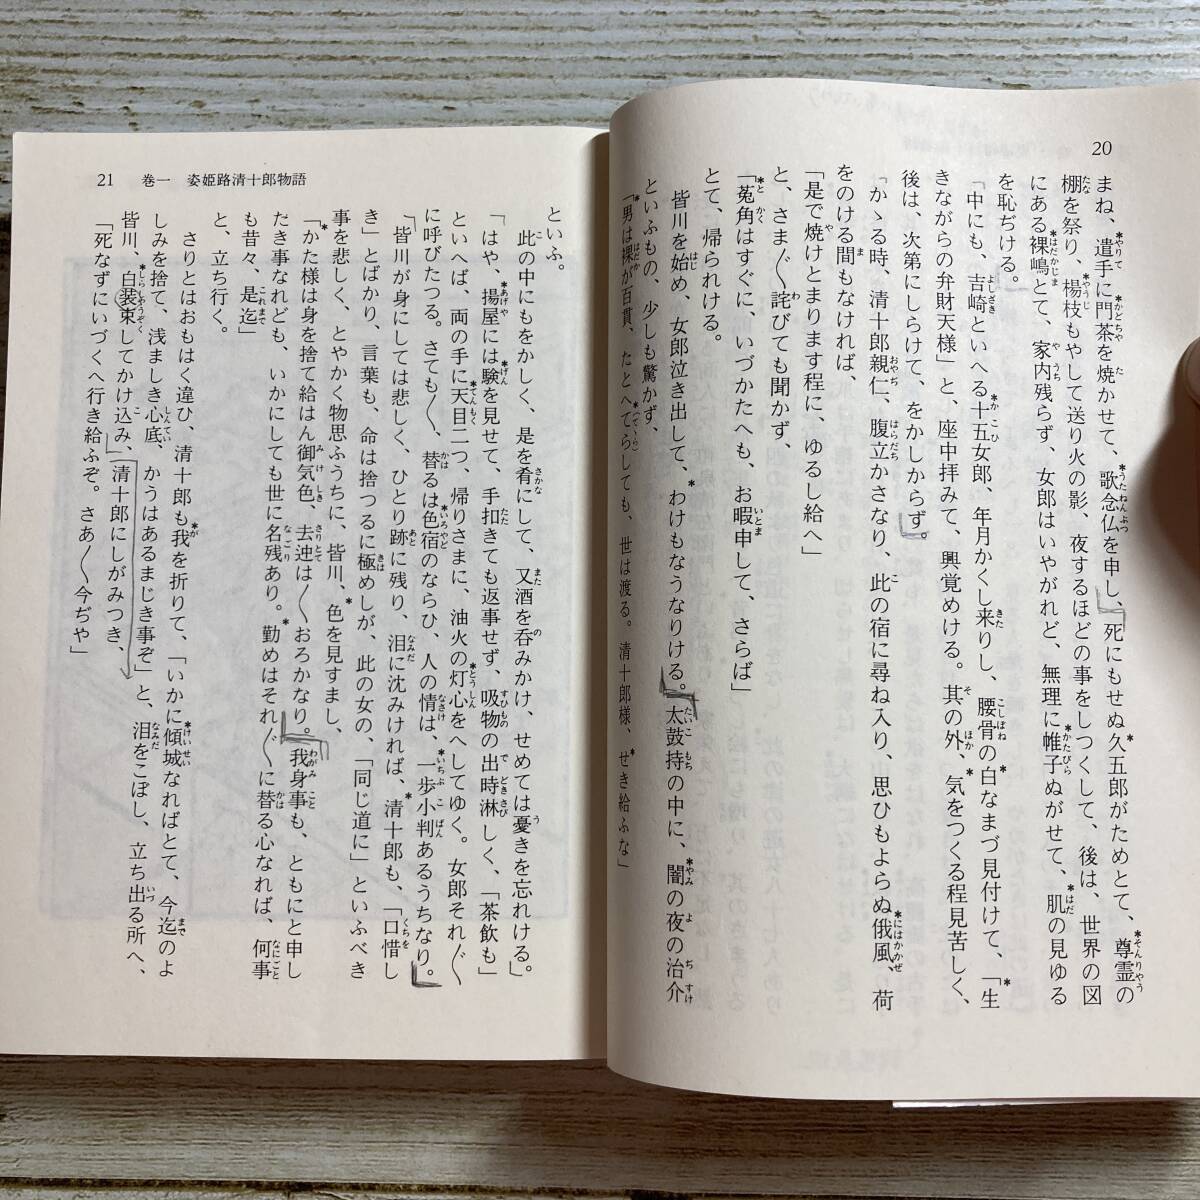 20
まね、遣手に門茶を焼かせて、歌念仏を申し、死にもせぬ久五郎がためとて、尊霊の
棚を祭り、楊枝もやして送り火の影、夜するほどの事をしつくして、後は、世界の図
にある裸嶋とて、家内残らず、女郎はいやがれど、無理に帷子ぬがせて、肌の見ゆる
を恥ぢける。
「中にも、吉崎といへる十五女郎、年月かくし来りし、腰骨の白なまづ見付けて、「生
きながらの弁財天様」と、座中拝みて、興覚めける。其の外、気をつくる程見苦しく、
後は、次第にしらけて、をかしからず。
かゝる時、清十郎親仁、腹立かさなり、此の宿に尋ね入り、思ひもよらぬ俄風、荷
をのける間もなければ、
「是で焼けとまります程に、ゆるし給へ」
と、さま〴〵詫びても聞かず、
「菟角はすぐに、いづかたへも、お暇申して、さらば」
とて、帰られける。
皆川を始め、女郎泣き出して、わけもなうなりける。太鼓持の中に、闇の夜の治介
といふもの、少しも驚かず、
「男は裸が百貫、たとへてらしても、世は渡る。清十郎様、せき給ふな」
21 巻一 姿姫路清十郎物語
といふ。
此の中にもをかしく、是を肴にして、又酒を呑みかけ、せめては憂きを忘れける。
「はや、揚屋には験を見せて、手扣きても返事せず、吸物の出時淋しく、「茶飲も」
といへば、両の手に天目二つ、帰りさまに、油火の灯心をへしてゆく。女郎それ〴〵
に呼びたつる。さても〳〵、替るは色宿のならひ、人の情は、一歩小判あるうちなり。
「皆川が身にしては悲しく、ひとり跡に残り、泪に沈みければ、清十郎も、「口惜し
き」とばかり、言葉も、命は捨つるに極めしが、此の女の、「同じ道に」といふべき
事を悲しく、とやかく物思ふうちに、皆川、色を見すまし、
「かた様は身を捨て給はん御気色、去迚は〳〵おろかなり。我身事も、ともにと申し
たき事なれども、いかにしても世に名残あり。勤めはそれ〴〵に替る心なれば、何事
も昔々、是迄」
と、立ち行く。
さりとはおもはく違ひ、清十郎も我を折りて、「いかに傾城なればとて、今迄のよ
しみを捨て、浅ましき心底、かうはあるまじき事ぞ」と、泪をこぼし、立ち出る所へ、
皆川、白装束してかけ込み、清十郎にしがみつき、
「死なずにいづくへ行き給ふぞ。さあ〳〵今ぢや」